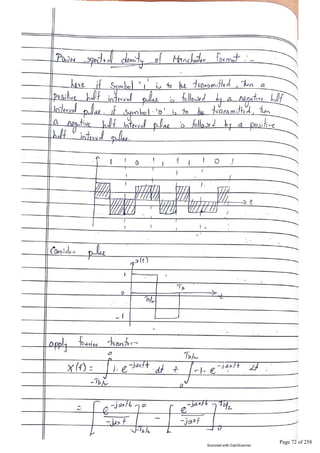 Power spectral density of Manchester format :-
here if symbol '1' is to be transmitted, then a
positive half interval pulse is followed by a negative half
interval pulse. if symbol '0' is to be transmitted, then
a negative half interval pulse is followed by a positive
half interval pulse.
1 1 0 1 1 1 0 1
t
Consider pulse
x(t)
1
0 Tb/2 Tb t
-1
apply fourier transform
X(f) = ∫ 1. e^-j2πft dt + ∫ -1. e^-j2πft dt.
= [ e^-j2πft / -j2πf ] - [ e^-j2πft / -j2πf ]
Scanned with CamScanner
Page 72 of 258